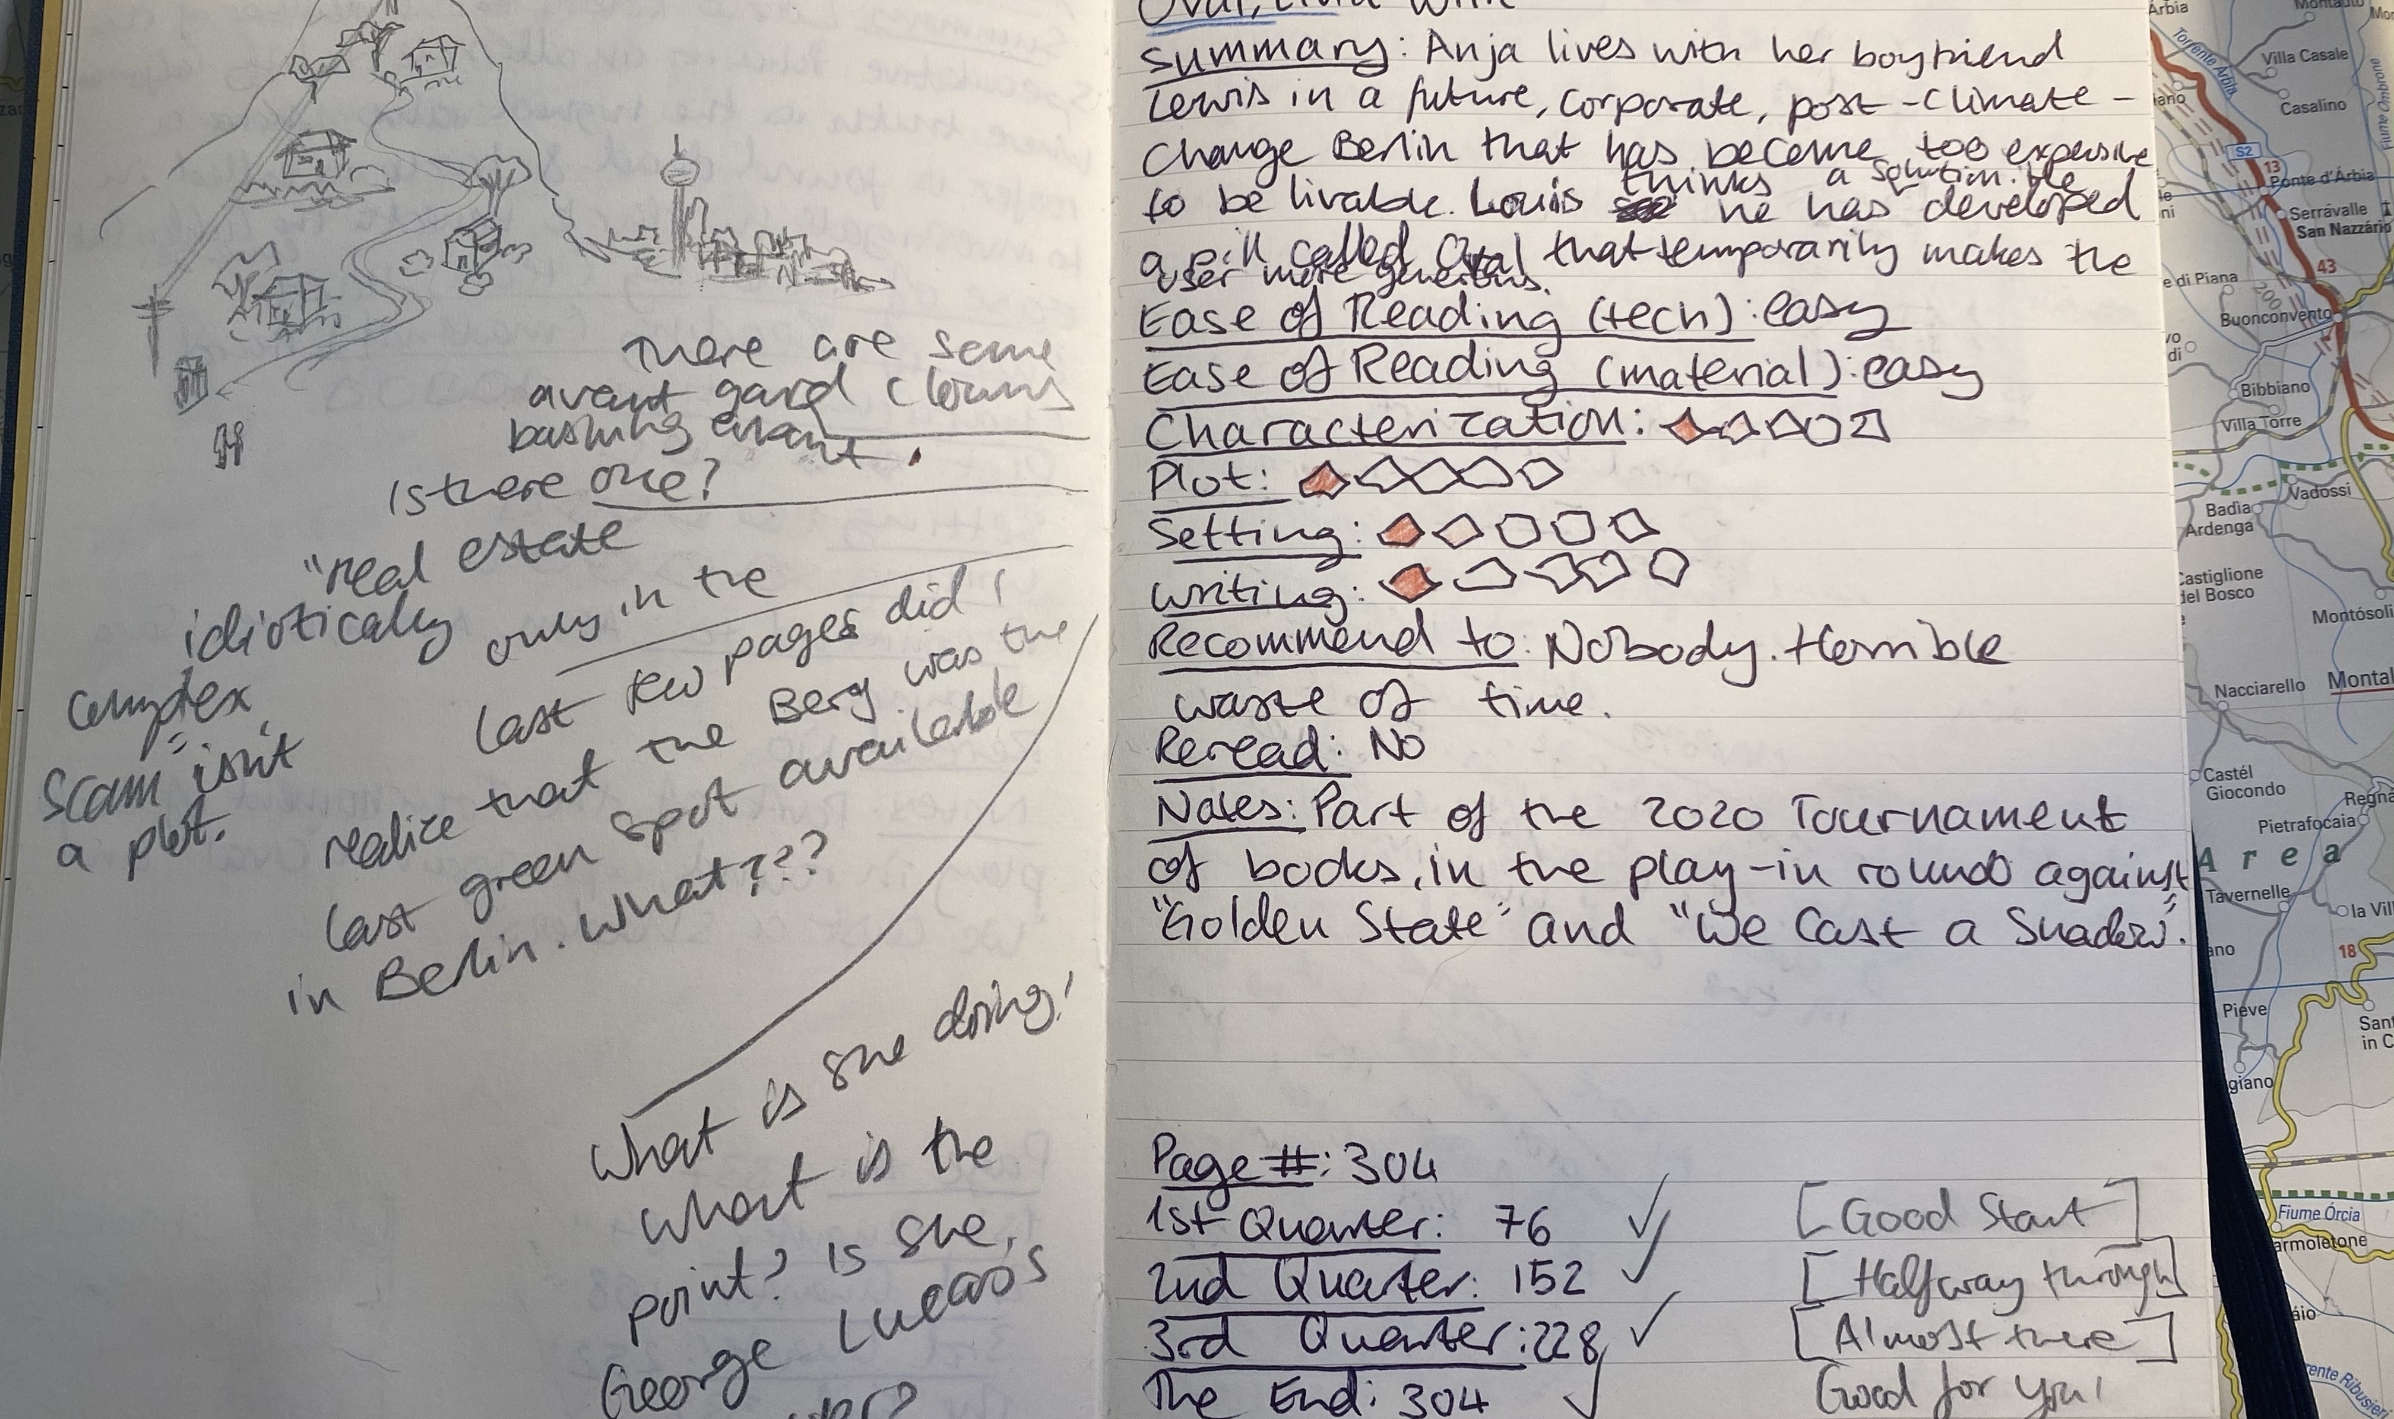 There are some
avant gard clowns
bashing avant.
Is there one?
"real estate
idiotically
complex
scam" isn't
a plot.
only in the
last few pages did I
realize that the Berg was the
last green spot available
in Berlin. What???
What is she doing!
What is the
point? Is she
George Lucas's
Oval, Elvia Wilk
Summary: Anja lives with her boyfriend
Lewis in a future, corporate, post-climate-
change Berlin that has become too expensive
to be livable. Louis thinks he has a solution. He has developed
a pill called Oval that temporarily makes the
user more generous.
Ease of Reading (tech): easy
Ease of Reading (material): easy
Characterization:
Plot:
Setting:
Writing:
Recommend to: Nobody. Horrible
waste of time.
Reread: No
Notes: Part of the 2020 Tournament
of books, in the play-in round against
"Golden State" and "We Cast a Shadow".
Page #: 304
1st Quarter: 76 ✓ [Good Start]
2nd Quarter: 152 ✓ [Halfway through]
3rd Quarter: 228 ✓ [Almost there]
The End: 304 ✓ Good for you!
Árbia
Torrente Arbia
Villa Casale
Casalino
S2
13
Ponte d'Árbia
Serrávalle
San Nazzário
Fiume Ombrone
43
di Piana
200
Buonconvento
Bibbiano
Villa Torre
Vadossi
Badia
Ardenga
Castiglione
del Bosco
Montósoli
Nacciarello
Montal
Castél
Giocondo
Regna
Pietrafocaia
Area
Tavernelle
la Vill
18
Pieve
Sant
in C
giano
Fiume Órcia
armoletone